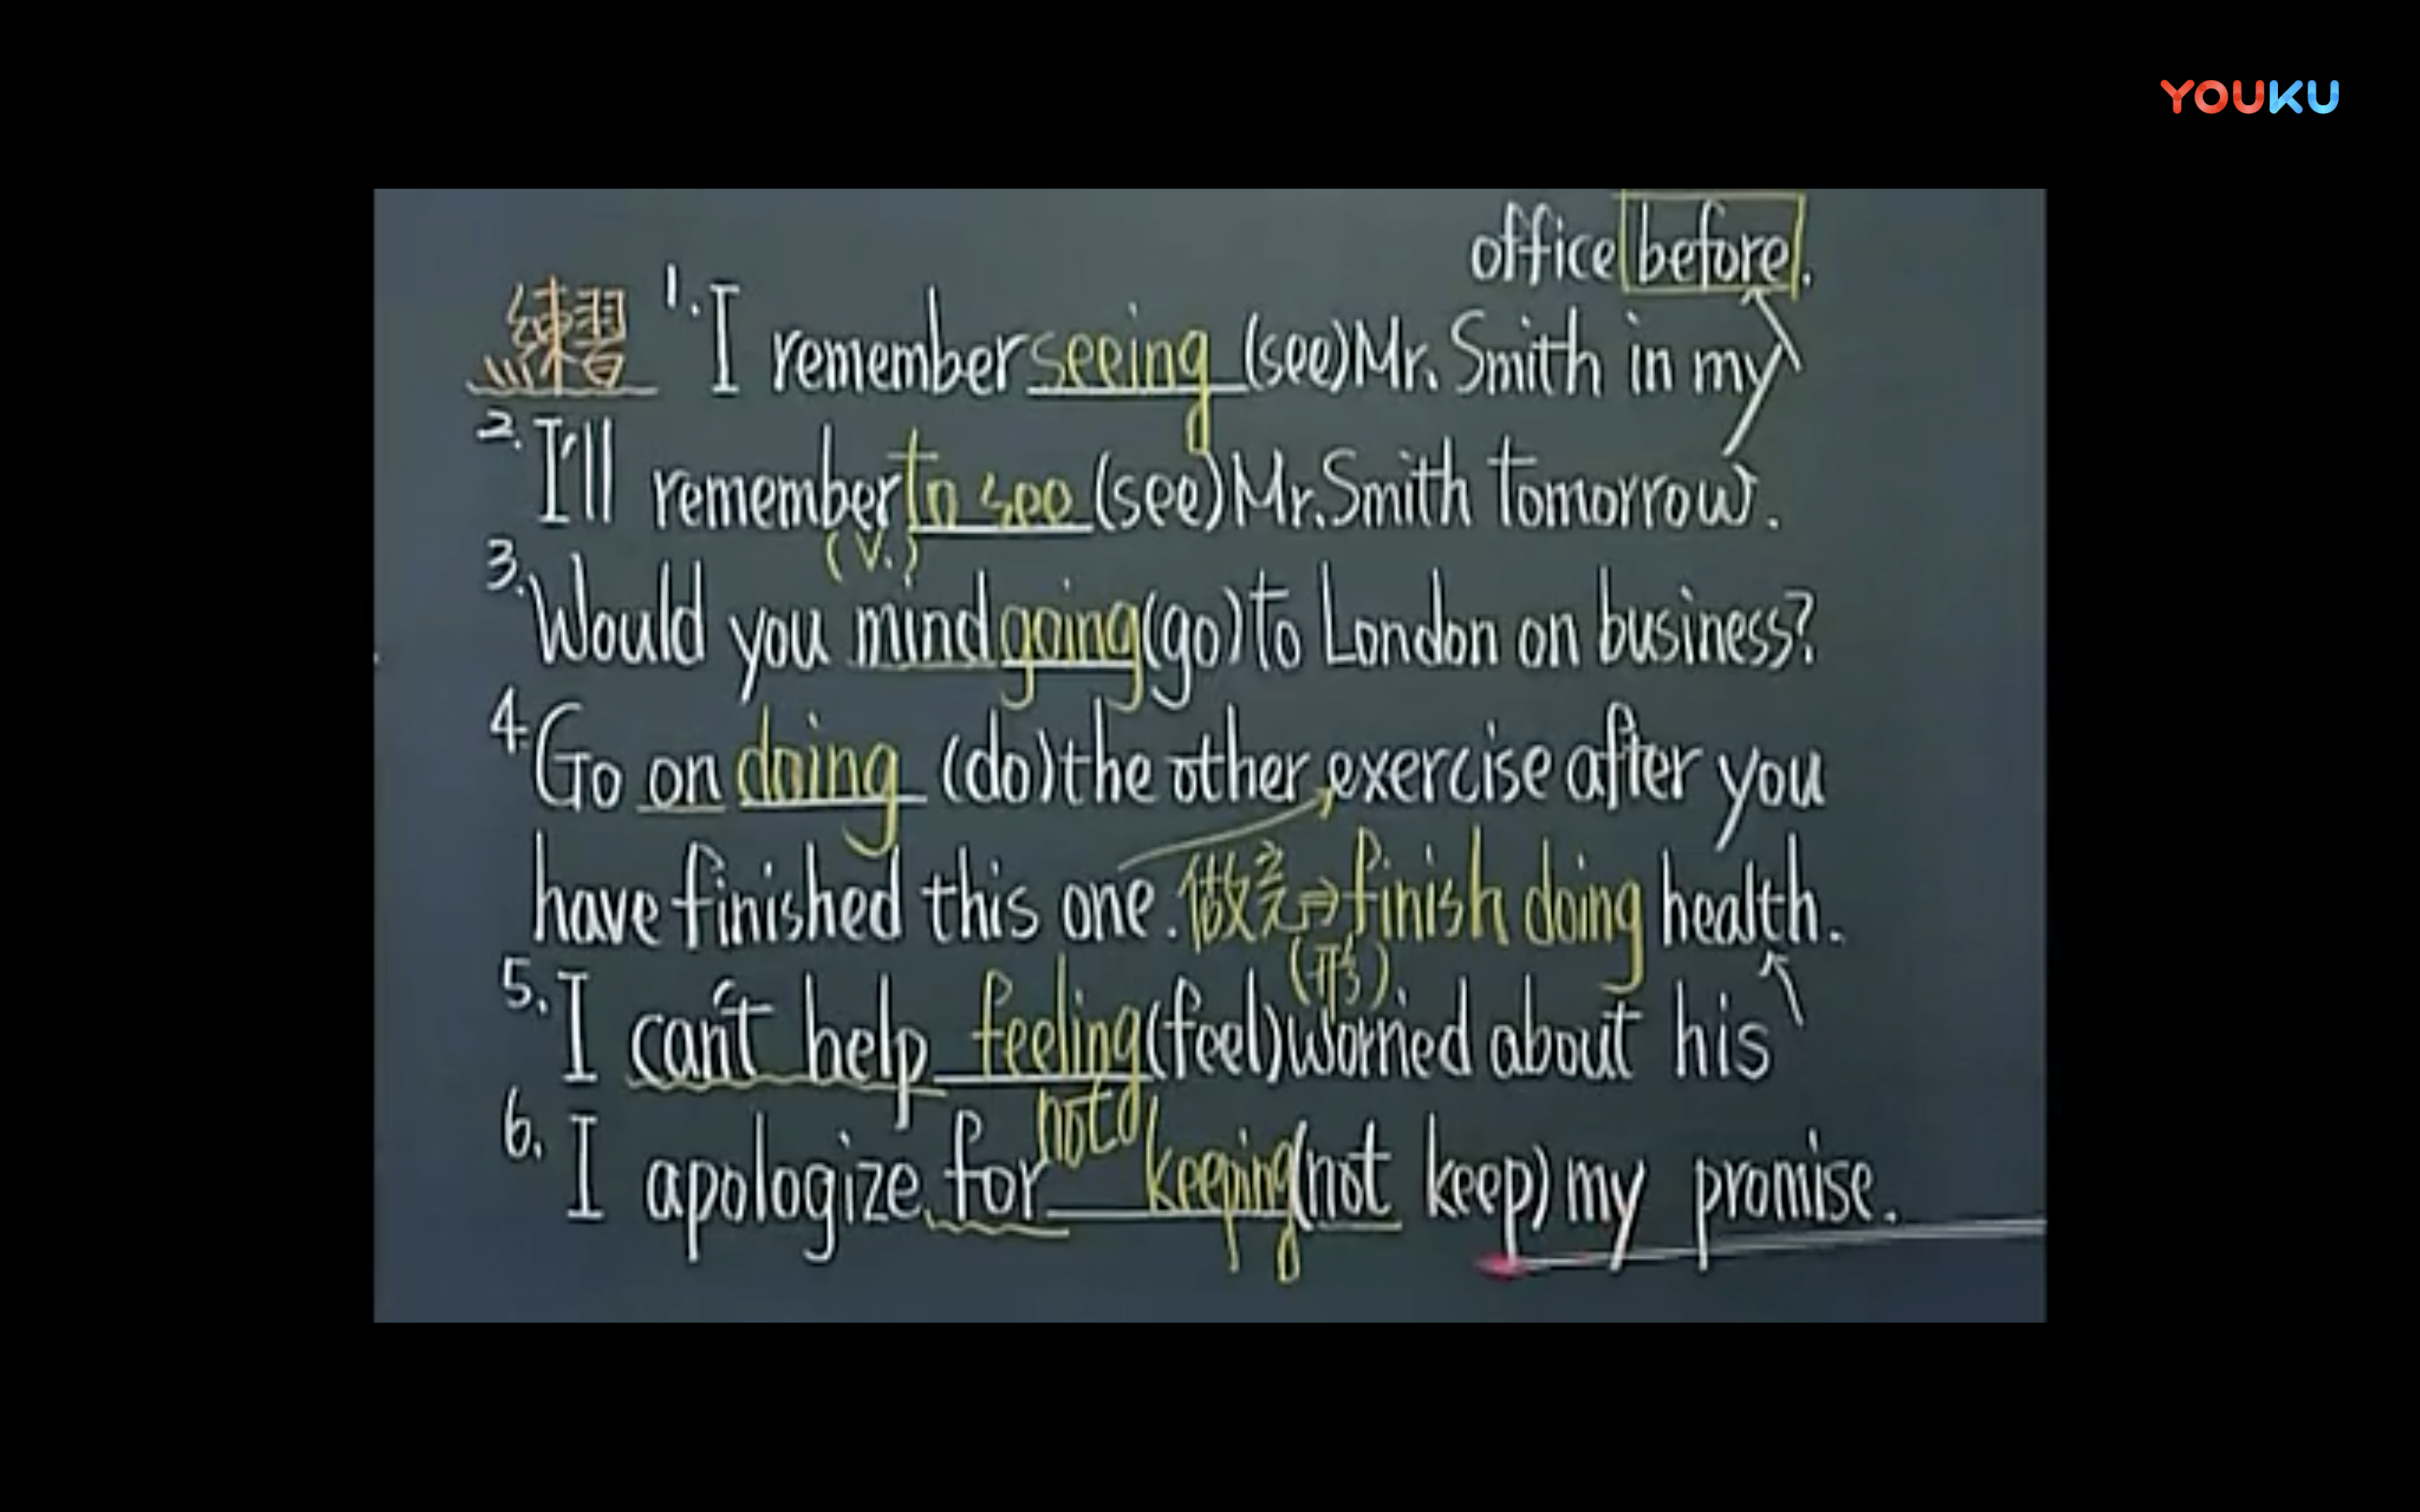 YOUKU
office before.
練習 1. I remember seeing (see) Mr. Smith in my
2. I'll remember to see (see) Mr. Smith tomorrow.
(v.)
3. Would you mind going (go) to London on business?
4. Go on doing (do) the other exercise after you
have finished this one. 做完⇒finish doing health.
(形)
5. I can't help feeling (feel) worried about his
not
6. I apologize for keeping (not keep) my promise.